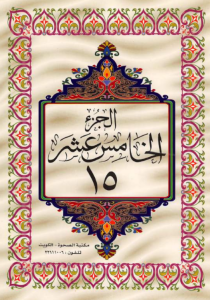 الجزء
الخامس عشر
١٥
مكتبة الصحوة - الكويت